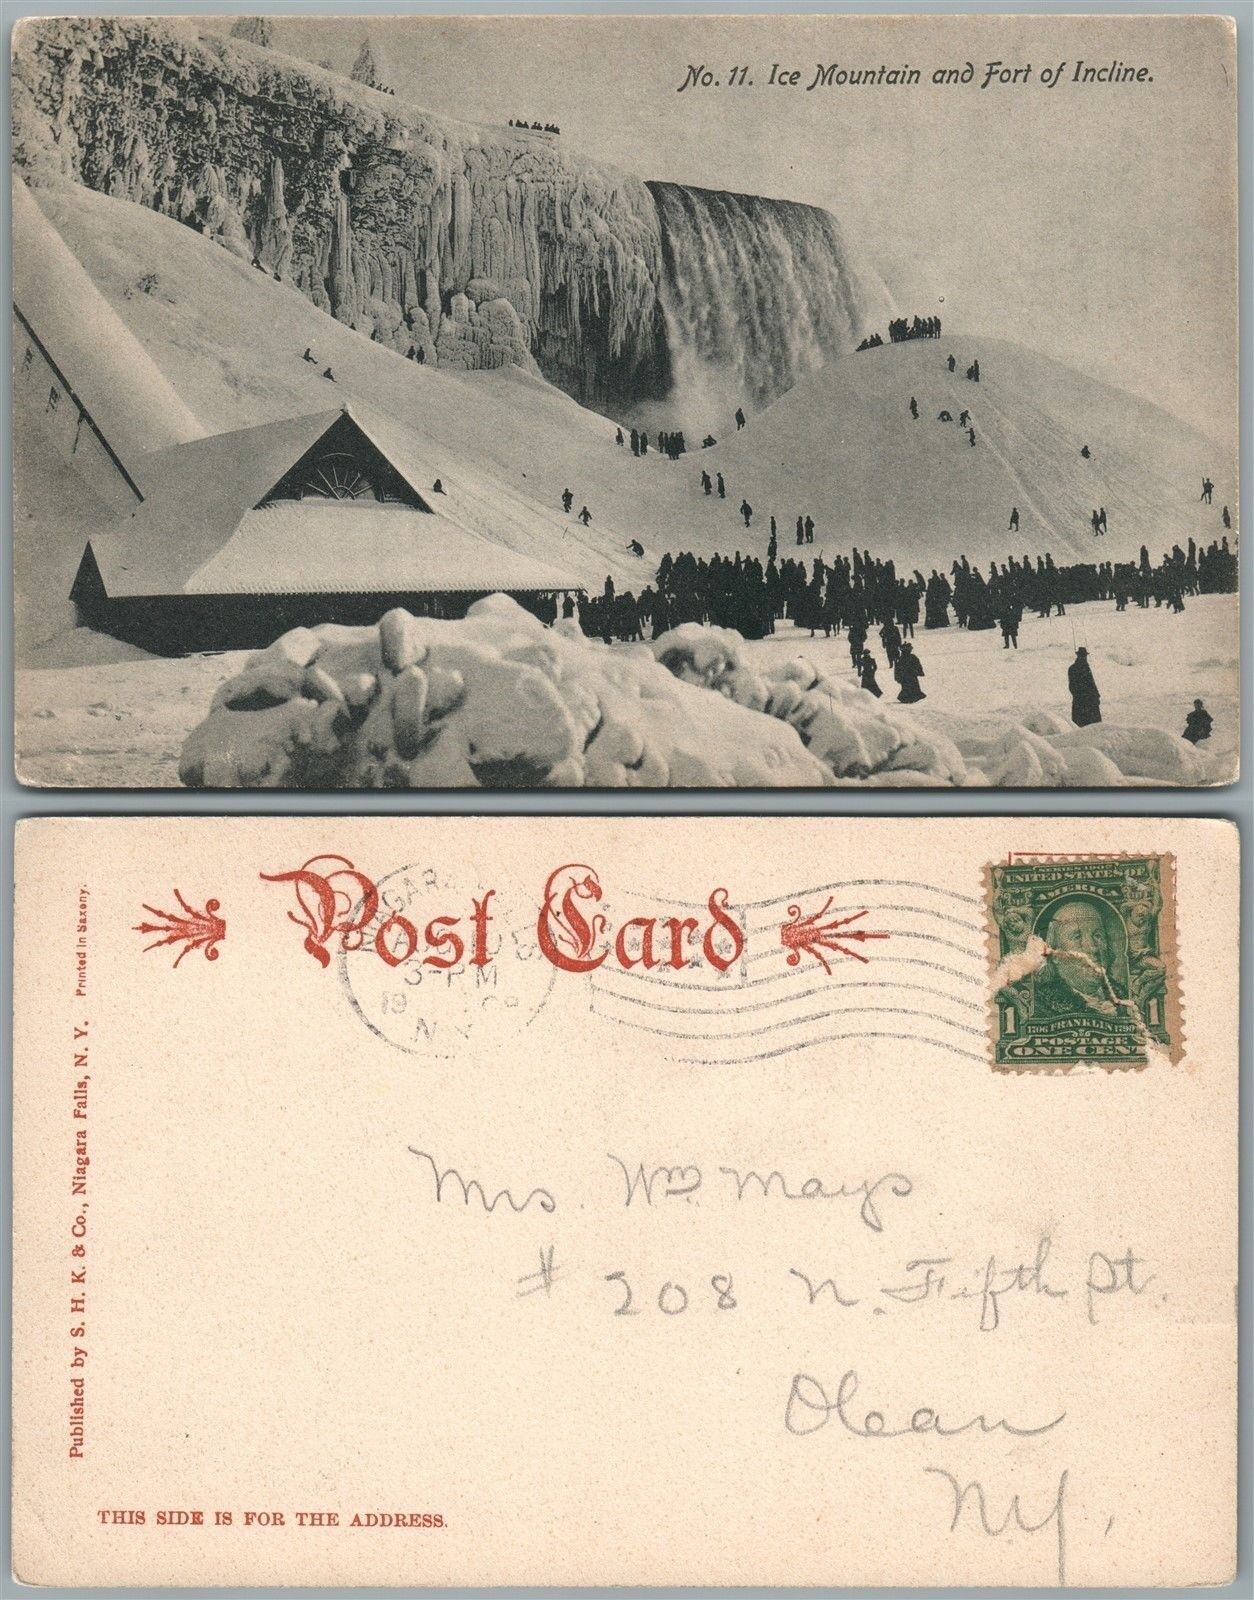 No. 11. Ice Mountain and Fort of Incline.
Post Card
NIAGARA
3-PM
19
N.Y.
SERIES 1902
UNITED STATES OF
AMERICA
1 1
1706 FRANKLIN 1790
POSTAGE
ONE CENT
Printed in Saxony.
Published by S. H. K. & Co., Niagara Falls, N. Y.
Mrs. Wm Mays
# 208 N. Fifth St.
Olean
NY,
THIS SIDE IS FOR THE ADDRESS.